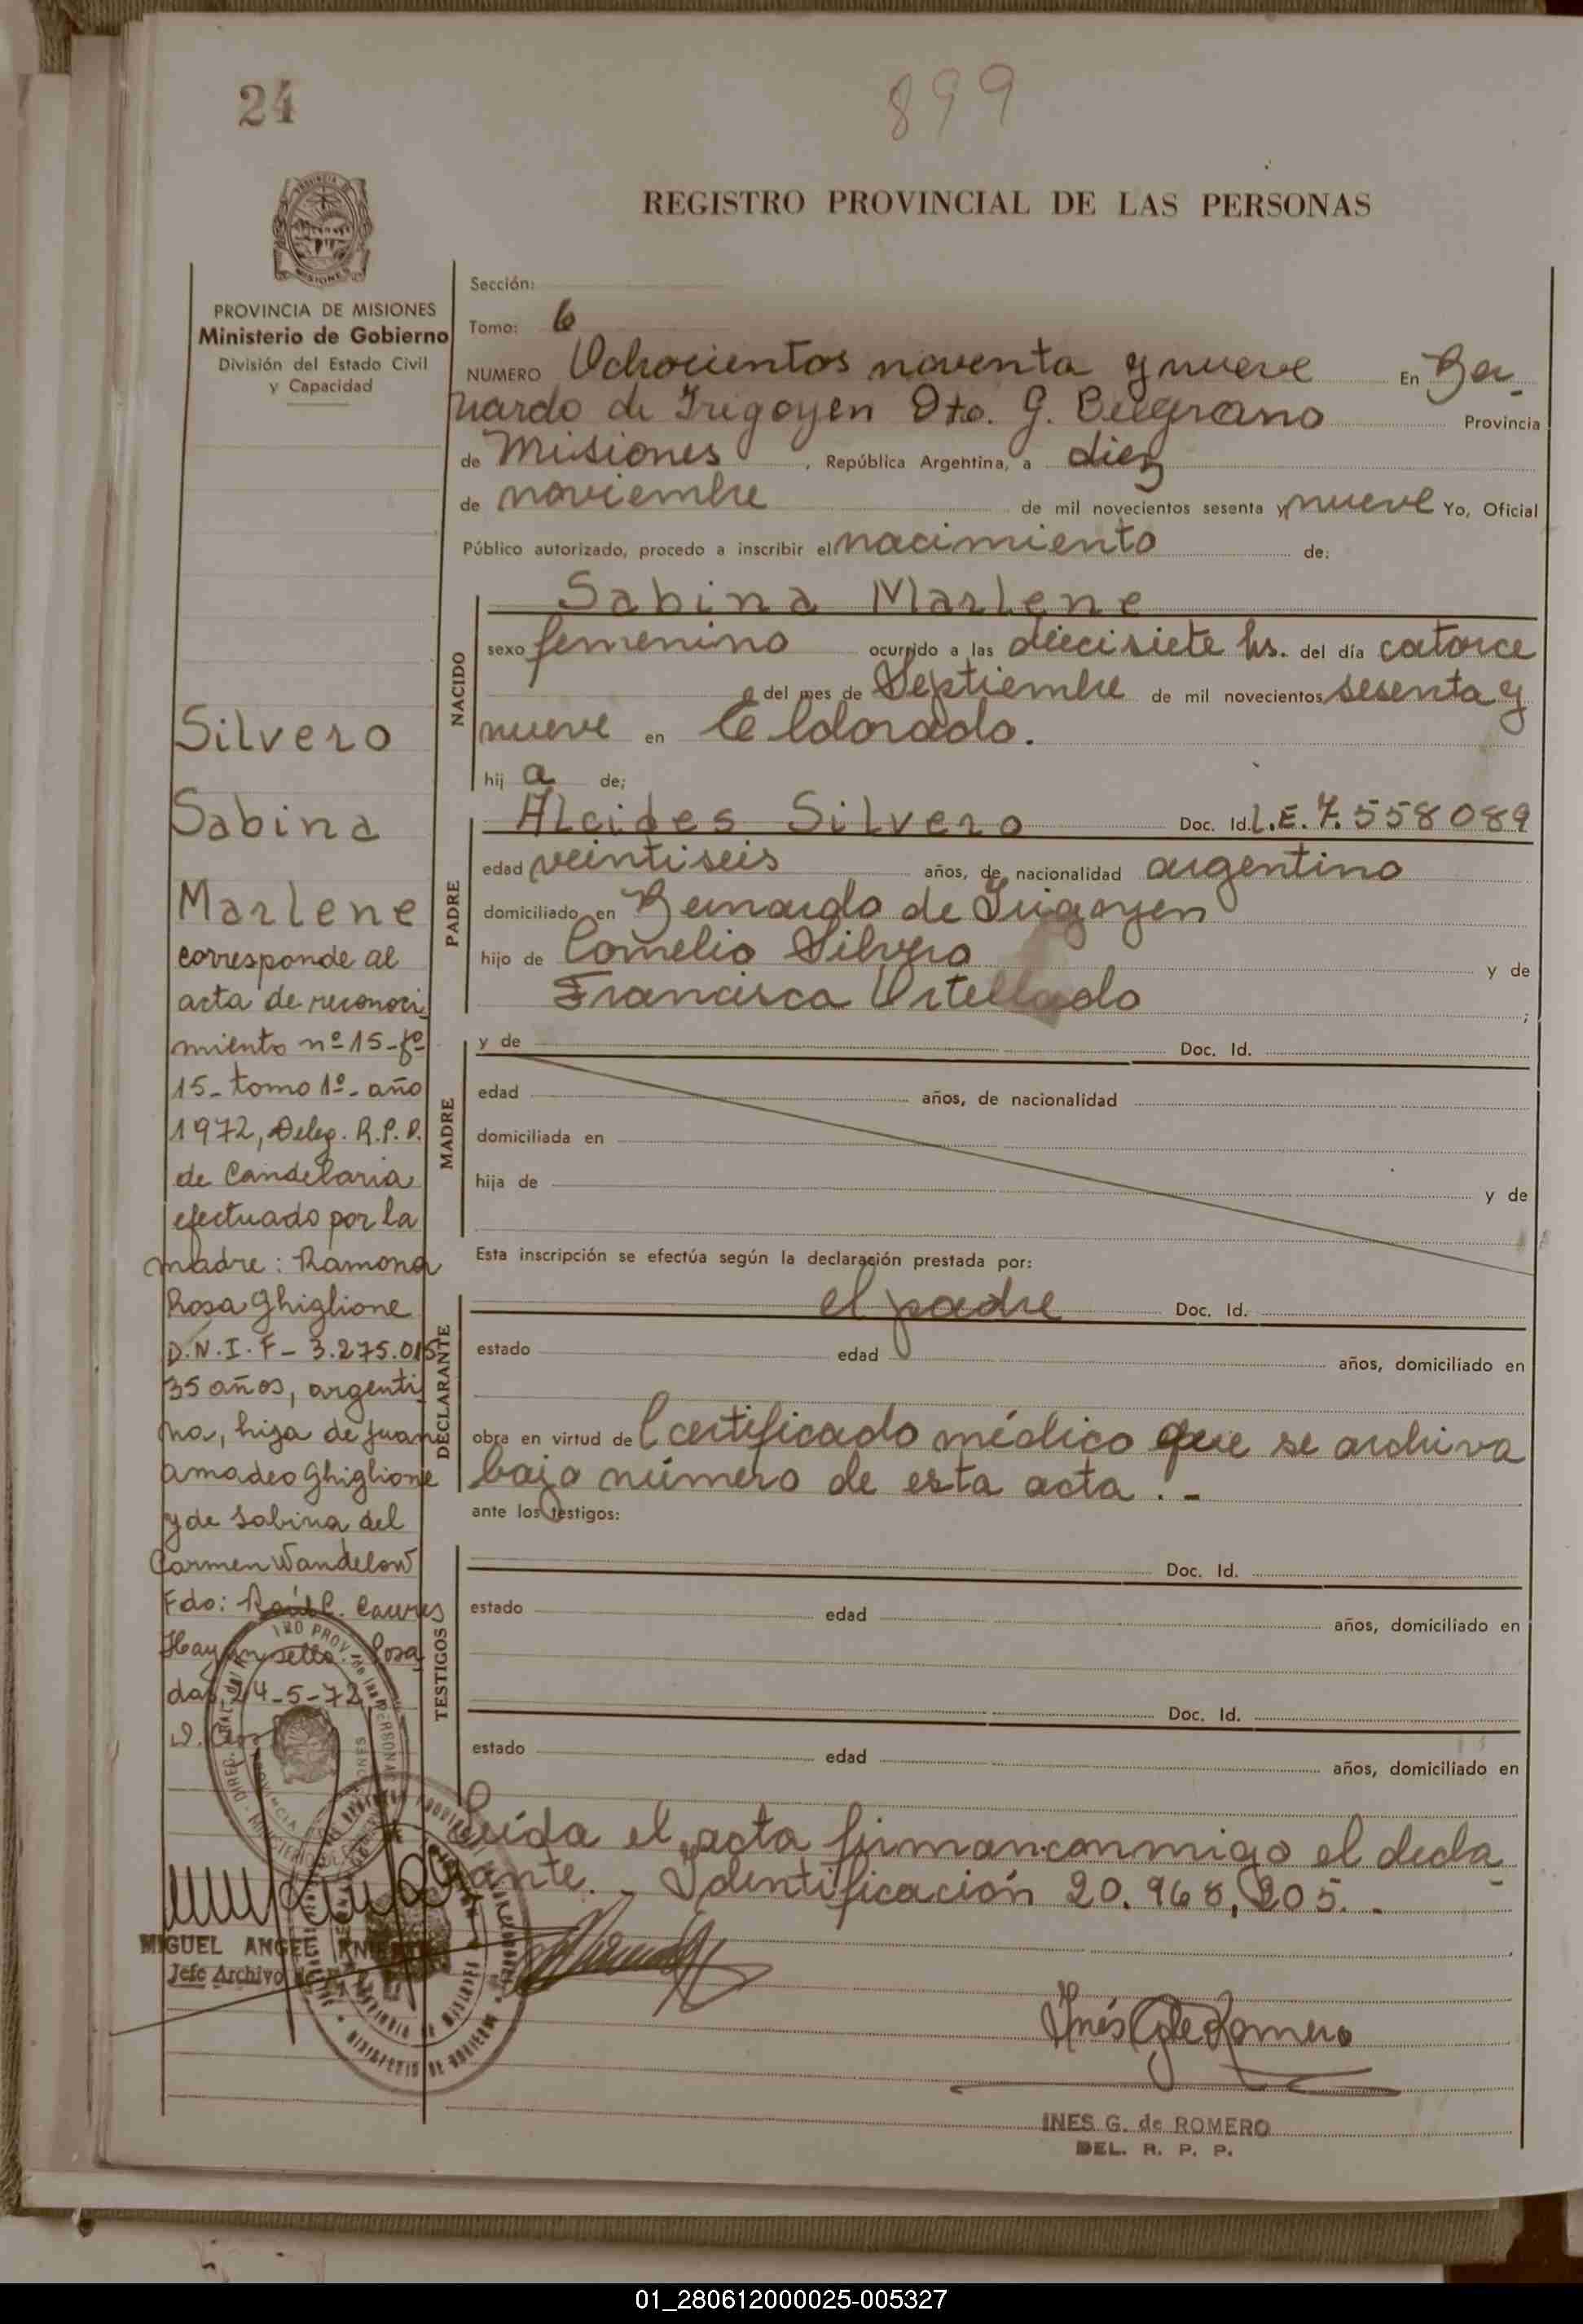 24
899
REGISTRO PROVINCIAL DE LAS PERSONAS
PROVINCIA DE MISIONES
Ministerio de Gobierno
División del Estado Civil
y Capacidad
Sección:
Tomo: 6
NUMERO Ochocientos noventa y nueve En Ber-
nardo de Irigoyen Dto. G. Belgrano Provincia
de Misiones, República Argentina, a diez
de noviembre de mil novecientos sesenta y nueve Yo, Oficial
Público autorizado, procedo a inscribir el nacimiento de:
NACIDO
Sabina Marlene
sexo femenino ocurrido a las diecisiete hs. del día catorce
del mes de Septiembre de mil novecientos sesenta y
nueve en Eldorado.
hij a de;
PADRE
Alcides Silvero Doc. Id. L.E. 7.558089
edad veintiseis años, de nacionalidad argentino
domiciliado en Bernardo de Irigoyen
hijo de Cornelio Silvero y de
Francisca Ortellado ;
MADRE
y de Doc. Id.
edad años, de nacionalidad
domiciliada en
hija de y de
Esta inscripción se efectúa según la declaración prestada por:
DECLARANTE
el padre Doc. Id.
estado edad años, domiciliado en
obra en virtud del certificado médico que se archiva
bajo número de esta acta . -
ante los testigos:
TESTIGOS
Doc. Id.
estado edad años, domiciliado en
Doc. Id.
estado edad años, domiciliado en
Leída el acta firman conmigo el decla-
rante. - Identificación 20.968,205. -
Silvero
Sabina
Marlene
corresponde al
acta de reconoci-
miento nº 15-fº
15- tomo 1º- año
1972, Deleg. R.P.P.
de Candelaria
efectuado por la
madre: Ramona
Rosa Ghiglione
D.N.I. F- 3.275.015
35 años, argenti
na, hija de Juan
Amadeo Ghiglione
y de Sabina del
Carmen Wandelow
Fdo: Raúl C.
Hay un sello. Posa
das, 24-5-72
MIGUEL ANGEL
Jefe Archivo
Inés G de Romero
INES G. de ROMERO
DEL. R. P. P.
01_280612000025-005327